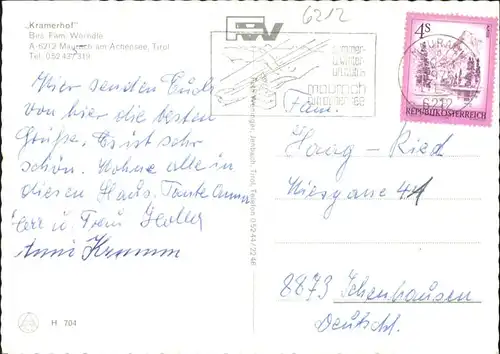 „Kramerhof"
Bes. Fam. Wörndle
A-6212 Maurach am Achensee, Tirol
Tel. 05243/7319
6212
sommer-
u.winter-
urlaub in
maurach
am achensee
4S
REPUBLIK ÖSTERREICH
6212
Wir senden Euch
von hier die besten
Grüße. Es ist sehr
schön. Wohne alle in
diesen Haus. Tante Anna
Herr u. Frau Holler
Anni Kramm
Fam.
Haag - Ried
Wiesgasse 44
8873 Ichenhausen
Deutschl.
H 704